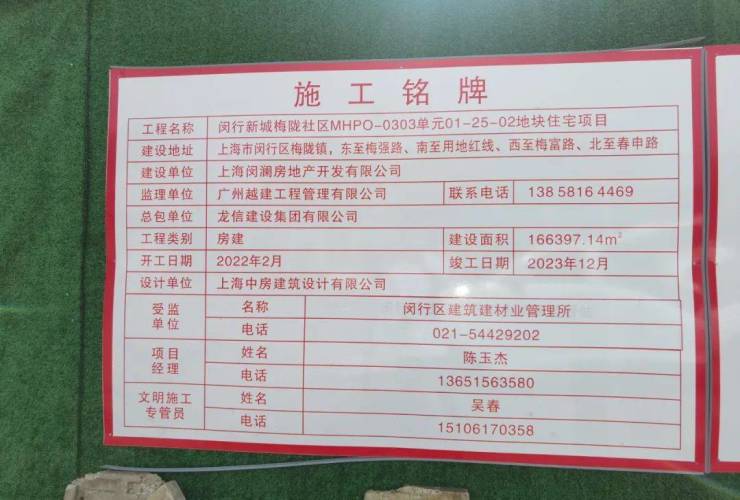 施工铭牌
工程名称 闵行新城梅陇社区MHPO-0303单元01-25-02地块住宅项目
建设地址 上海市闵行区梅陇镇，东至梅强路、南至用地红线、西至梅富路、北至春申路
建设单位 上海闵澜房地产开发有限公司
监理单位 广州越建工程管理有限公司 联系电话 138 5816 4469
总包单位 龙信建设集团有限公司
工程类别 房建 建设面积 166397.14m²
开工日期 2022年2月 竣工日期 2023年12月
设计单位 上海中房建筑设计有限公司
受监单位 名称 闵行区建筑建材业管理所
电话 021-54429202
项目经理 姓名 陈玉杰
电话 13651563580
文明施工专管员 姓名 吴春
电话 15106170358